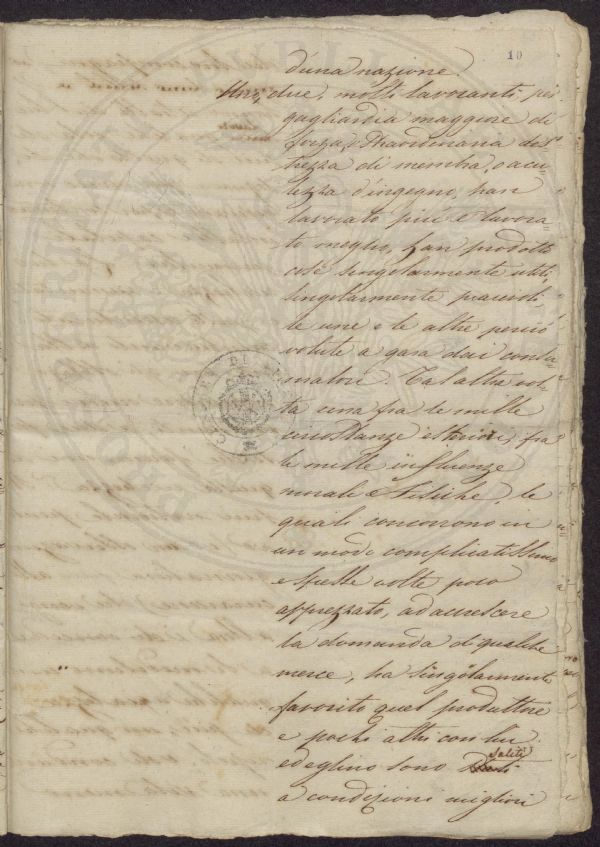 10
d'una nazione.
Uno, due, molti lavoranti per
gagliardia maggiore di
forza, straordinaria des
trezza di membra, o acu
tezza d'ingegno, han
lavorato più e lavora
to meglio, han prodotto
cose singolarmente utili,
singolarmente piacevoli,
le une e le altre perciò
volute a gara dai consu
matori. Tal altra vol
ta una fra le mille
circostanze esteriori, fra
le mille influenze
morali e fisiche, le
quali concorrono in
un modo complicatissimo
e spesse volte poco
apprezzato, ad accrescere
la domanda di qualche
merce, ha singolarmente
favorito quel produttore
e pochi altri con lui
ed eglino sono saliti
a condizioni migliori